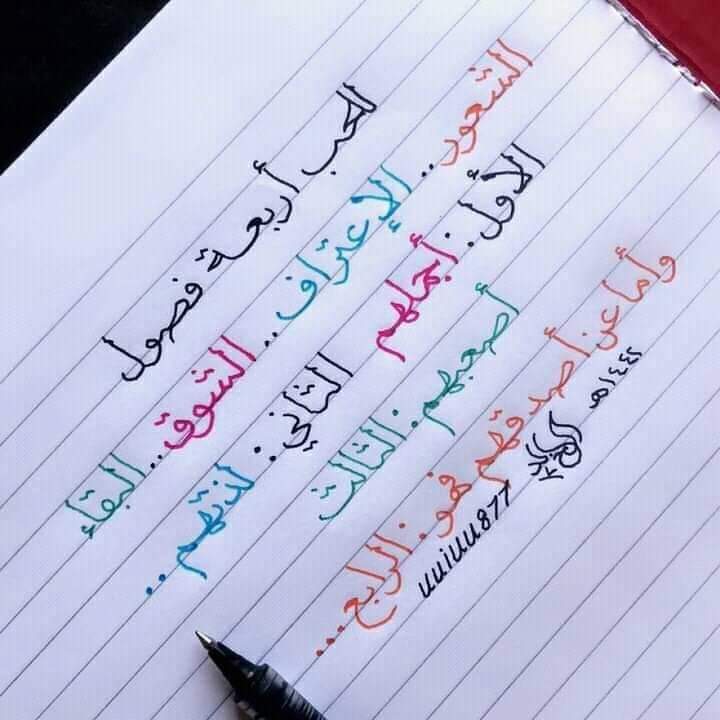 الحب أربعة فصول
الشعور.. الإعتراف.. الشوق.. البقاء
الأول: أجملهم الثاني: لذتهم..
أصعبهم: الثالث
وأما عن أصدقهم فهو: الرابع...
١٤٤٢هـ
uuiuu877